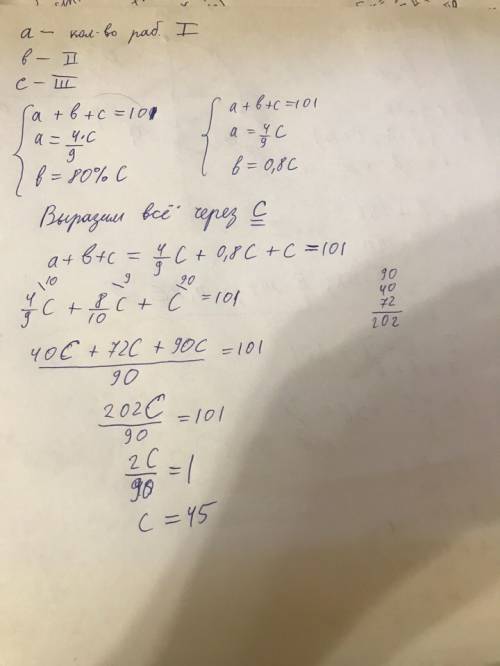 a – кол-во раб. I
в – II
с – III
a + в + c = 101
a = 4/9 · C
в = 80% C
a + в + c = 101
a = 4/9 C
в = 0,8C
Выразим всё через C
a + в + c = 4/9 C + 0,8C + C = 101
4/9 \10 C + 8/10 \9 C + C \90 = 101
90
40
72
202
40C + 72C + 90C / 90 = 101
202C / 90 = 101
2C / 90 = 1
C = 45